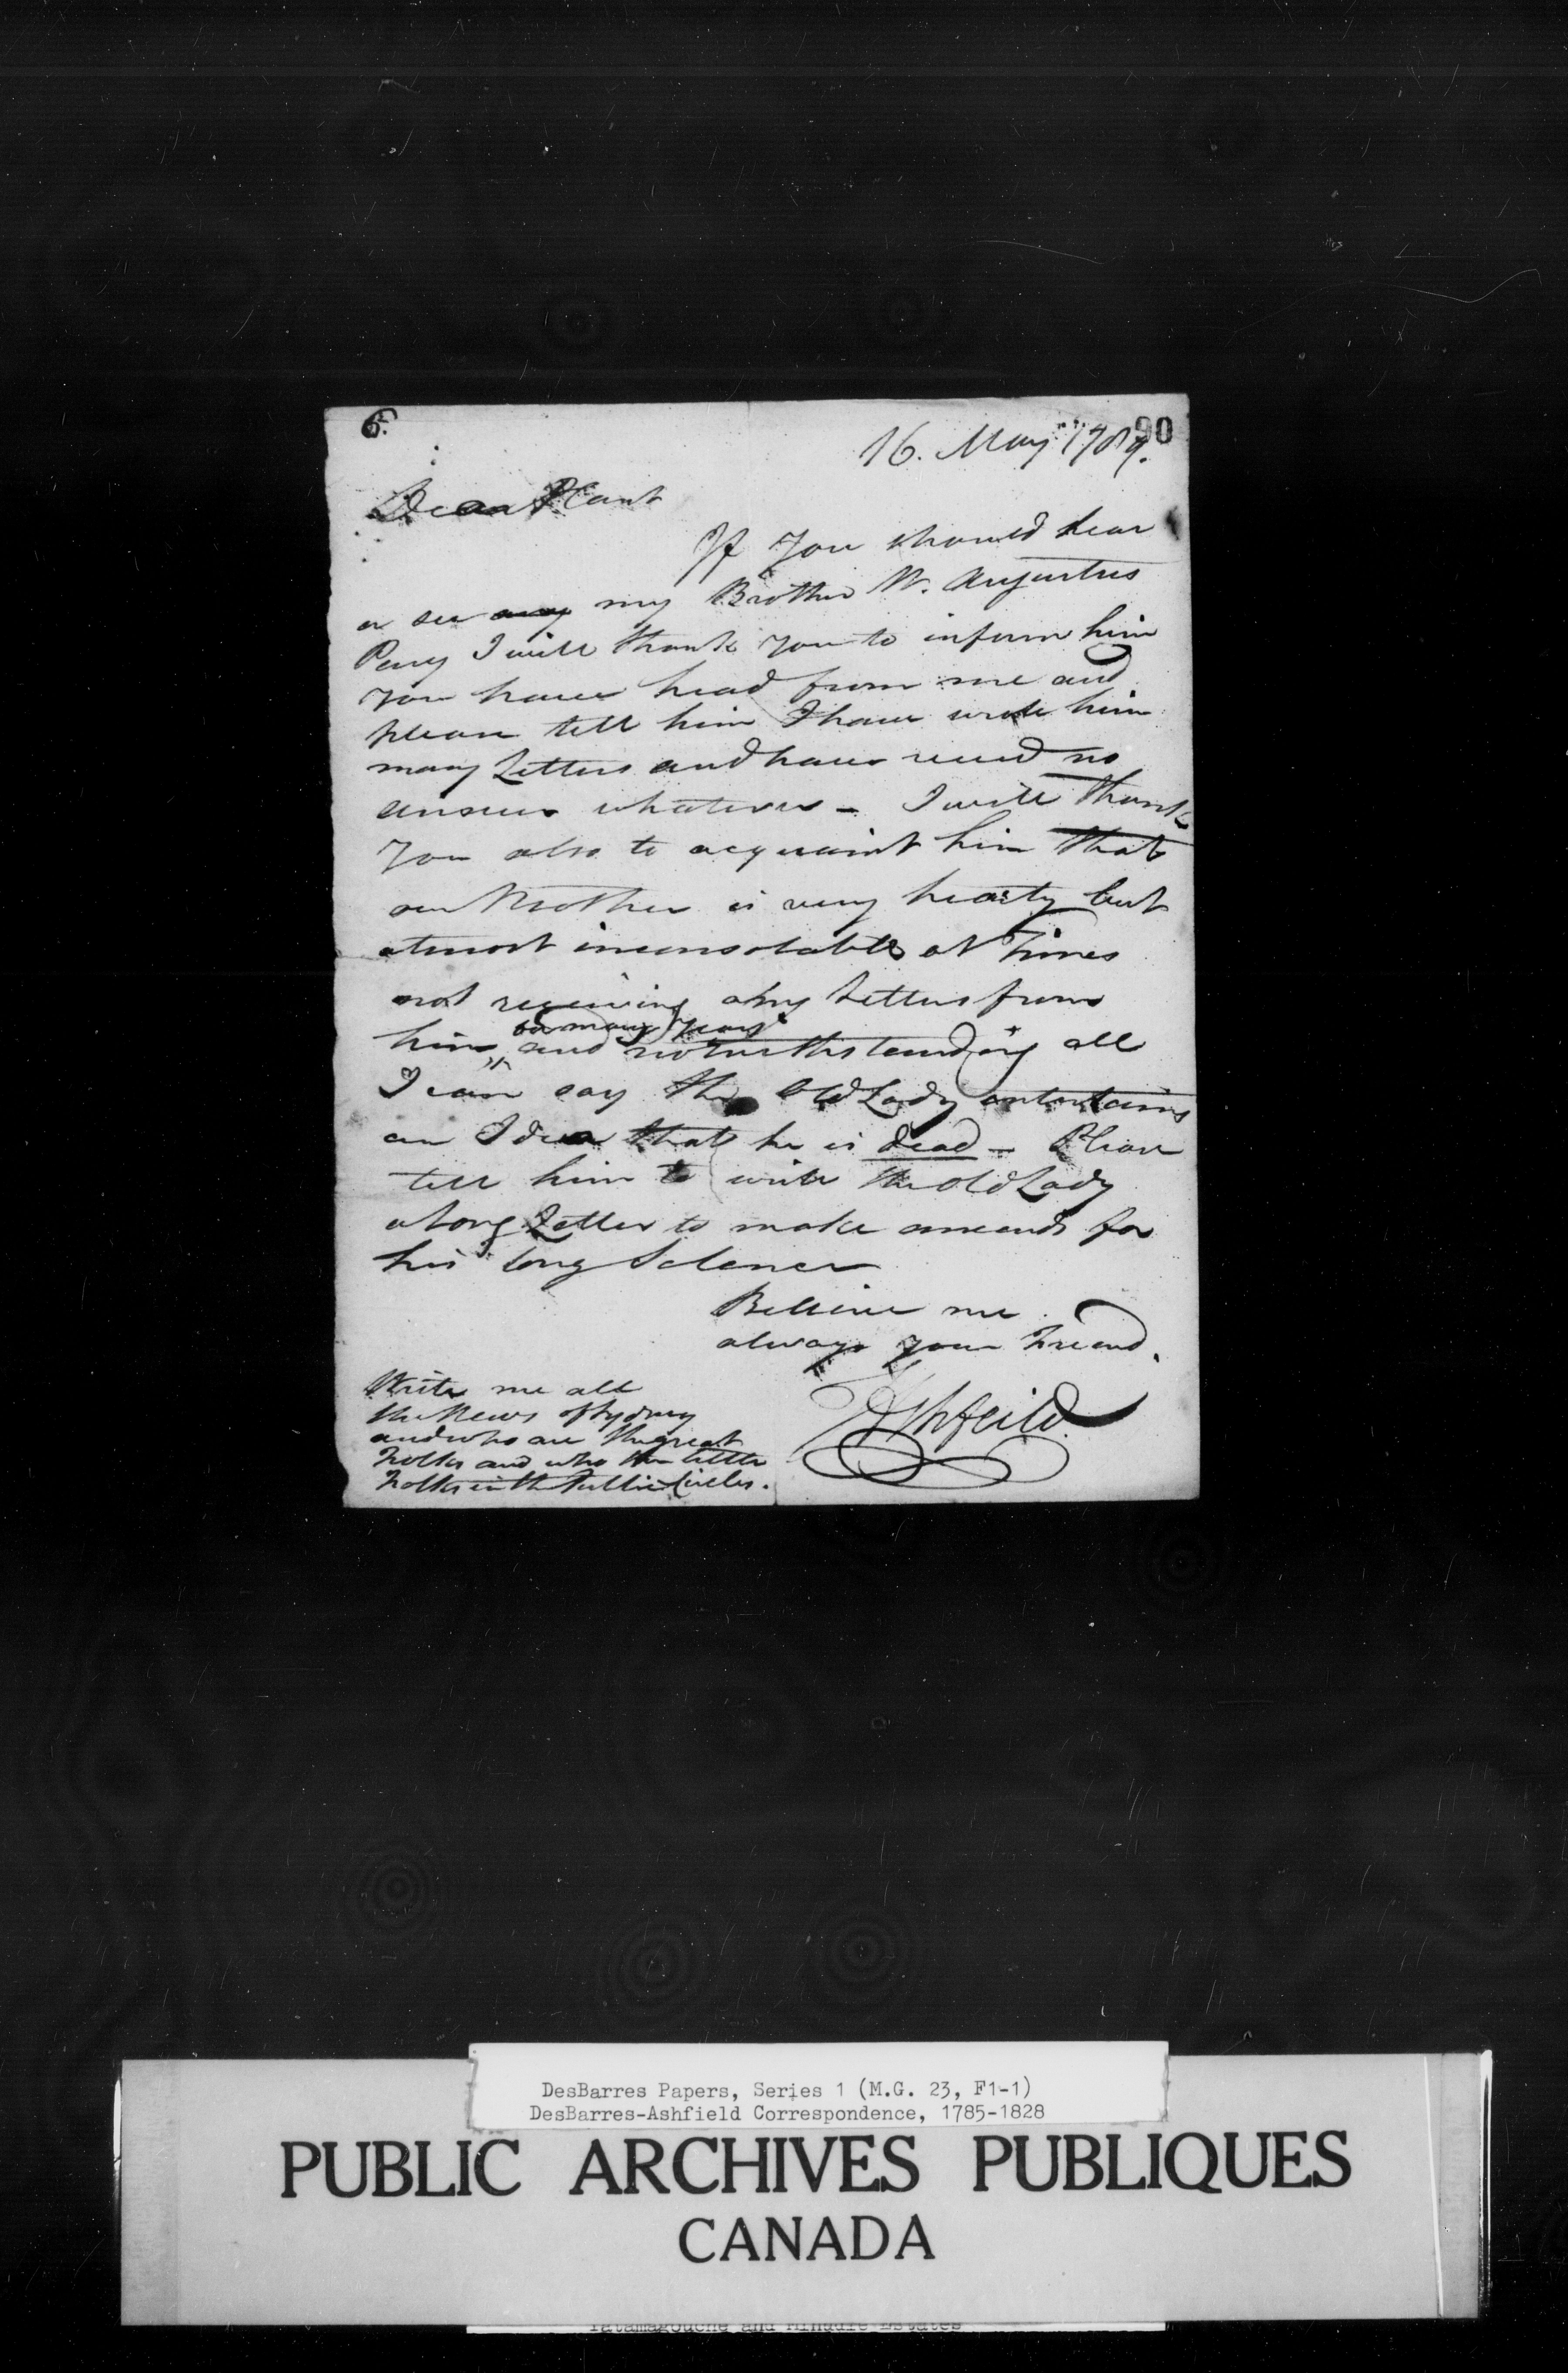 6.
90
16. May 1789.
Dear Plant
If you should hear
or see any my Brother W. Augustus
Perry I will thank you to inform him
you have head from me and
please tell him I have wrote him
many Letters and have recued no
answer whatever – I will thank
you also to acquaint him that
our Mother is very hearty but
almost inconsolable at times
not receiving any Letters from
for many years
him, and notwithstanding all
I can say the Old Lady entertains
an Idea that he is dead – Please
tell him to write the old Lady
a long Letter to make amends for
his long Silence
Believe me
always your Friend.
Ashfeild
Write me all
the News of Sydney
and who are the great
Folks and who the little
Folks in the Public Circles.
DesBarres Papers, Series 1 (M.G. 23, F1-1)
DesBarres-Ashfield Correspondence, 1785-1828
PUBLIC ARCHIVES PUBLIQUES
CANADA
Tatamagouche and Minudie Estates